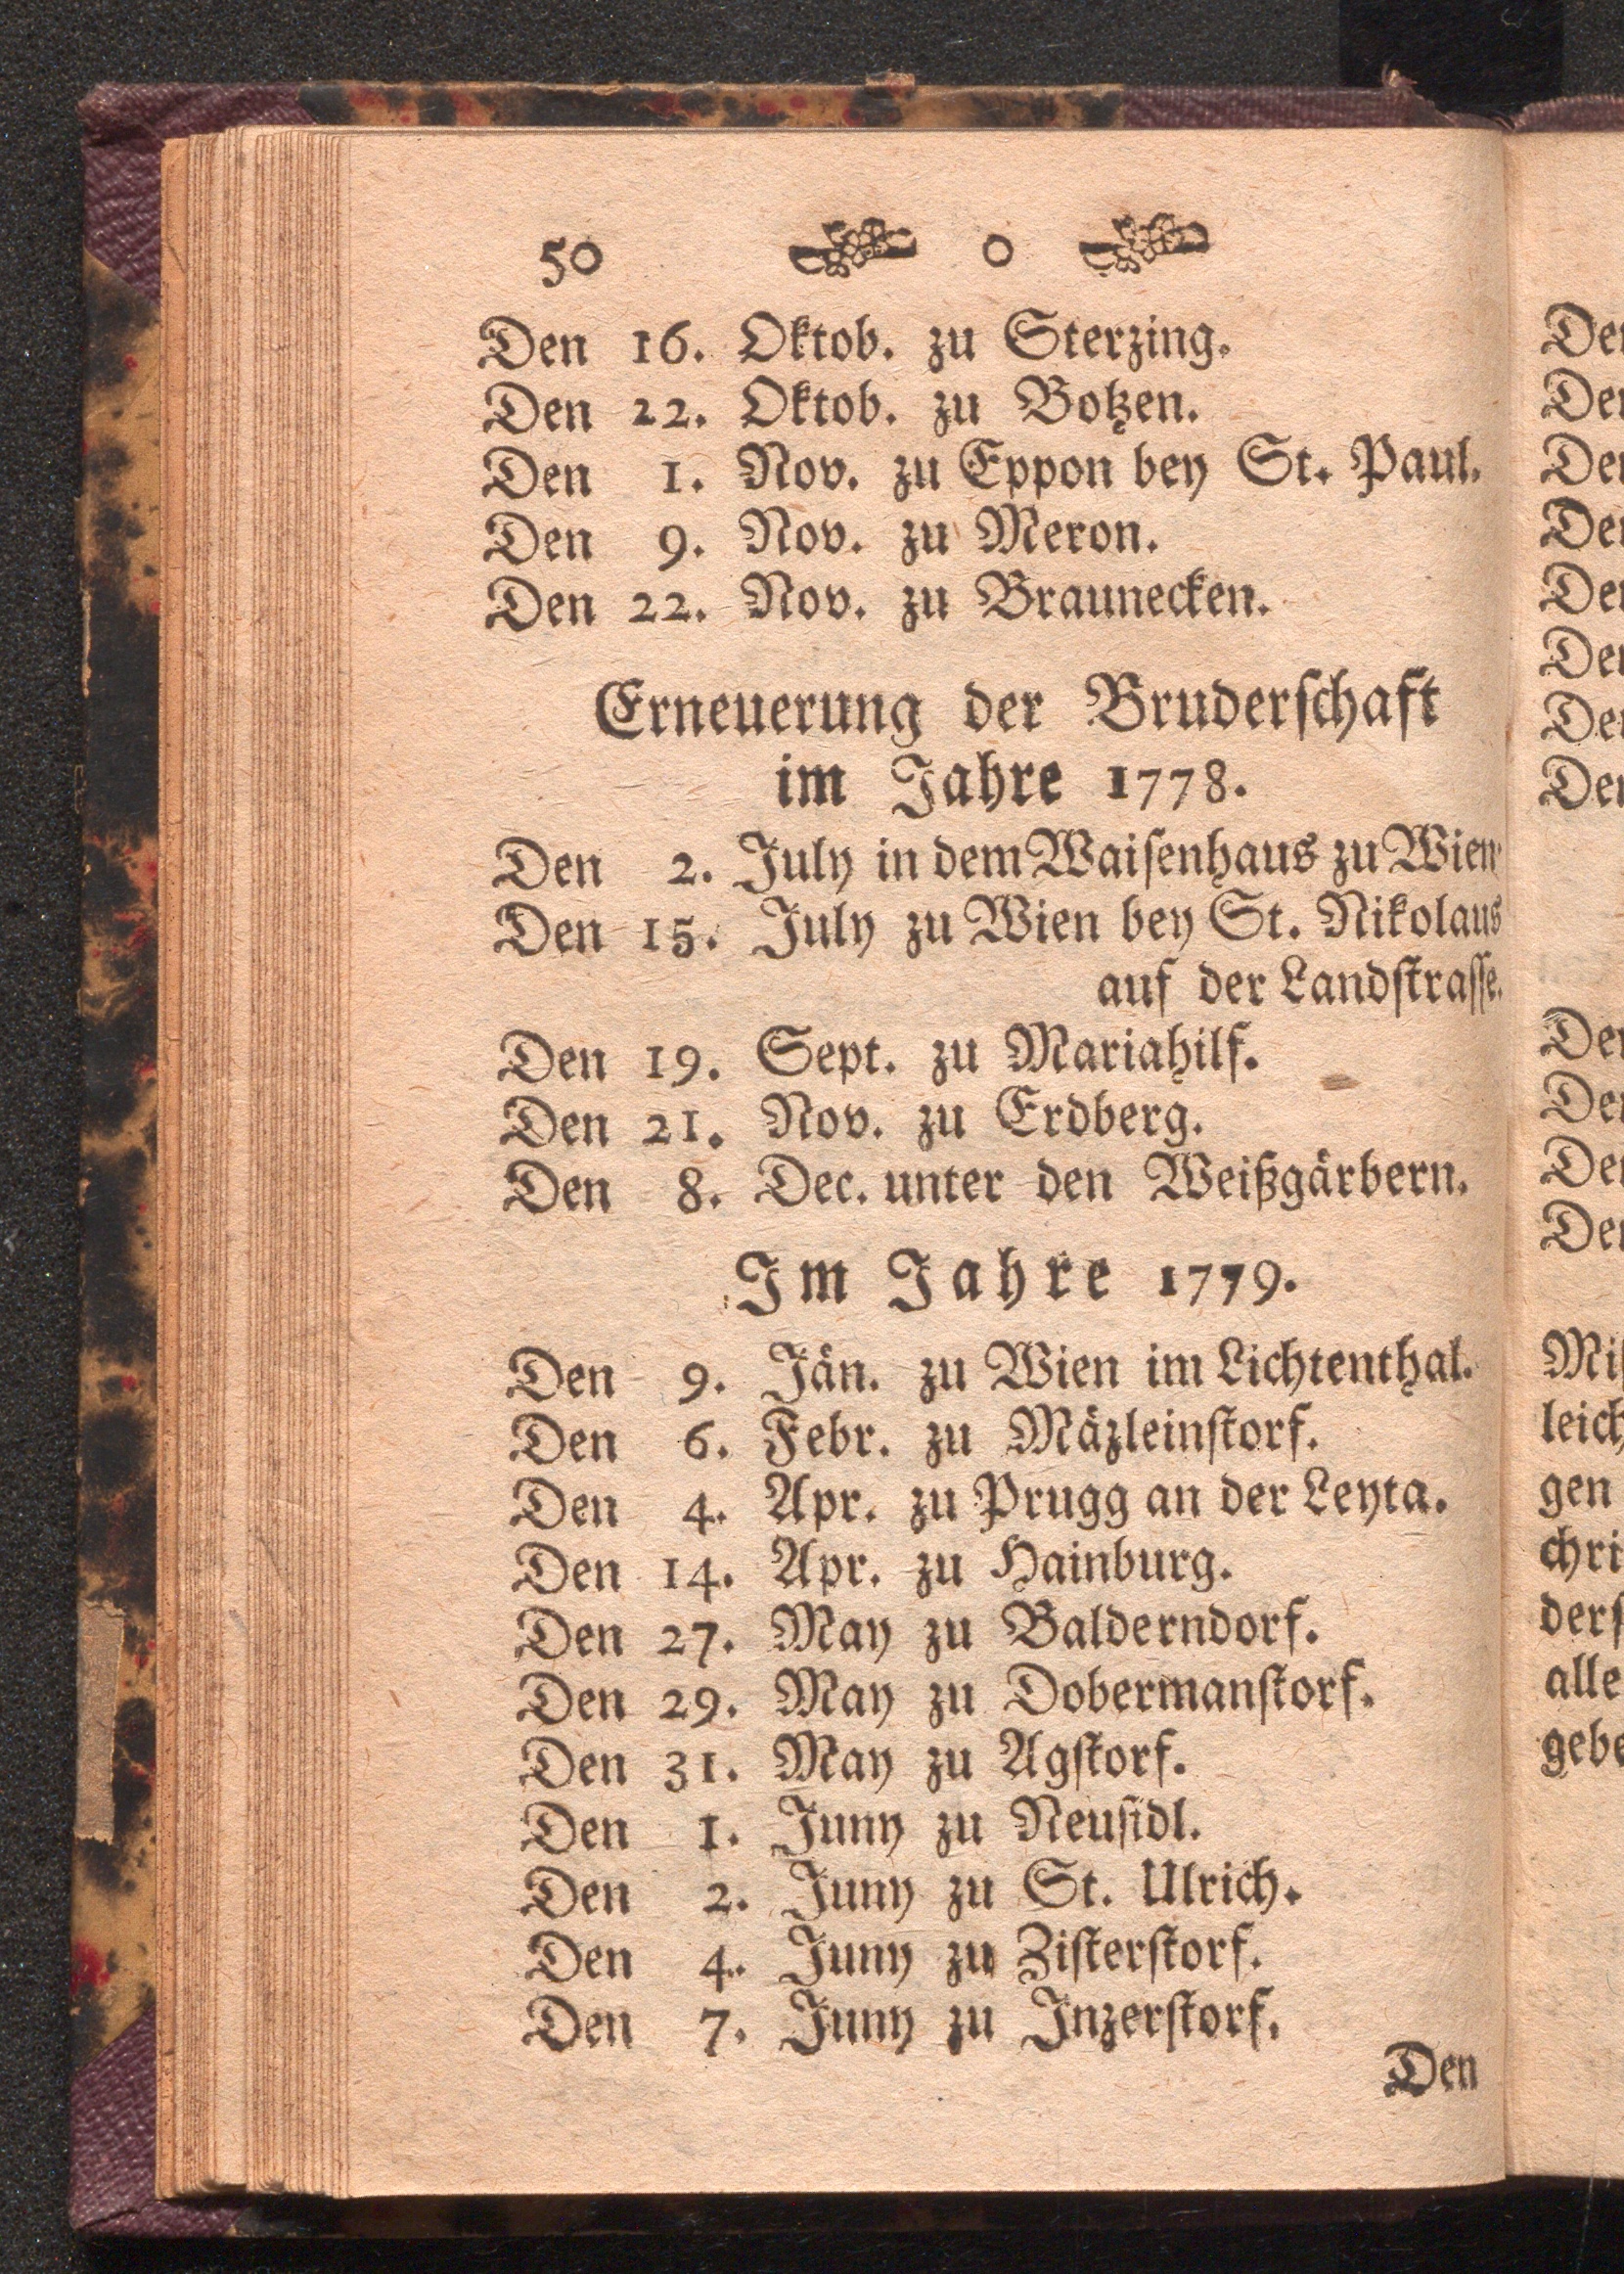 50 0
Den 16. Oktob. zu Sterzing.
Den 22. Oktob. zu Botzen.
Den 1. Nov. zu Eppon bey St. Paul.
Den 9. Nov. zu Meron.
Den 22. Nov. zu Braunecken.
Erneuerung der Bruderſchaft
im Jahre 1778.
Den 2. July in dem Waiſenhaus zu Wien
Den 15. July zu Wien bey St. Nikolaus
auf der Landſtraſſe.
Den 19. Sept. zu Mariahilf.
Den 21. Nov. zu Erdberg.
Den 8. Dec. unter den Weißgärbern.
Im Jahre 1779.
Den 9. Jän. zu Wien im Lichtenthal.
Den 6. Febr. zu Mäzleinſtorf.
Den 4. Apr. zu Prugg an der Leyta.
Den 14. Apr. zu Hainburg.
Den 27. May zu Balderndorf.
Den 29. May zu Dobermanſtorf.
Den 31. May zu Agſtorf.
Den 1. Juny zu Neuſidl.
Den 2. Juny zu St. Ulrich.
Den 4. Juny zu Ziſterſtorf.
Den 7. Juny zu Inzerſtorf.
Den